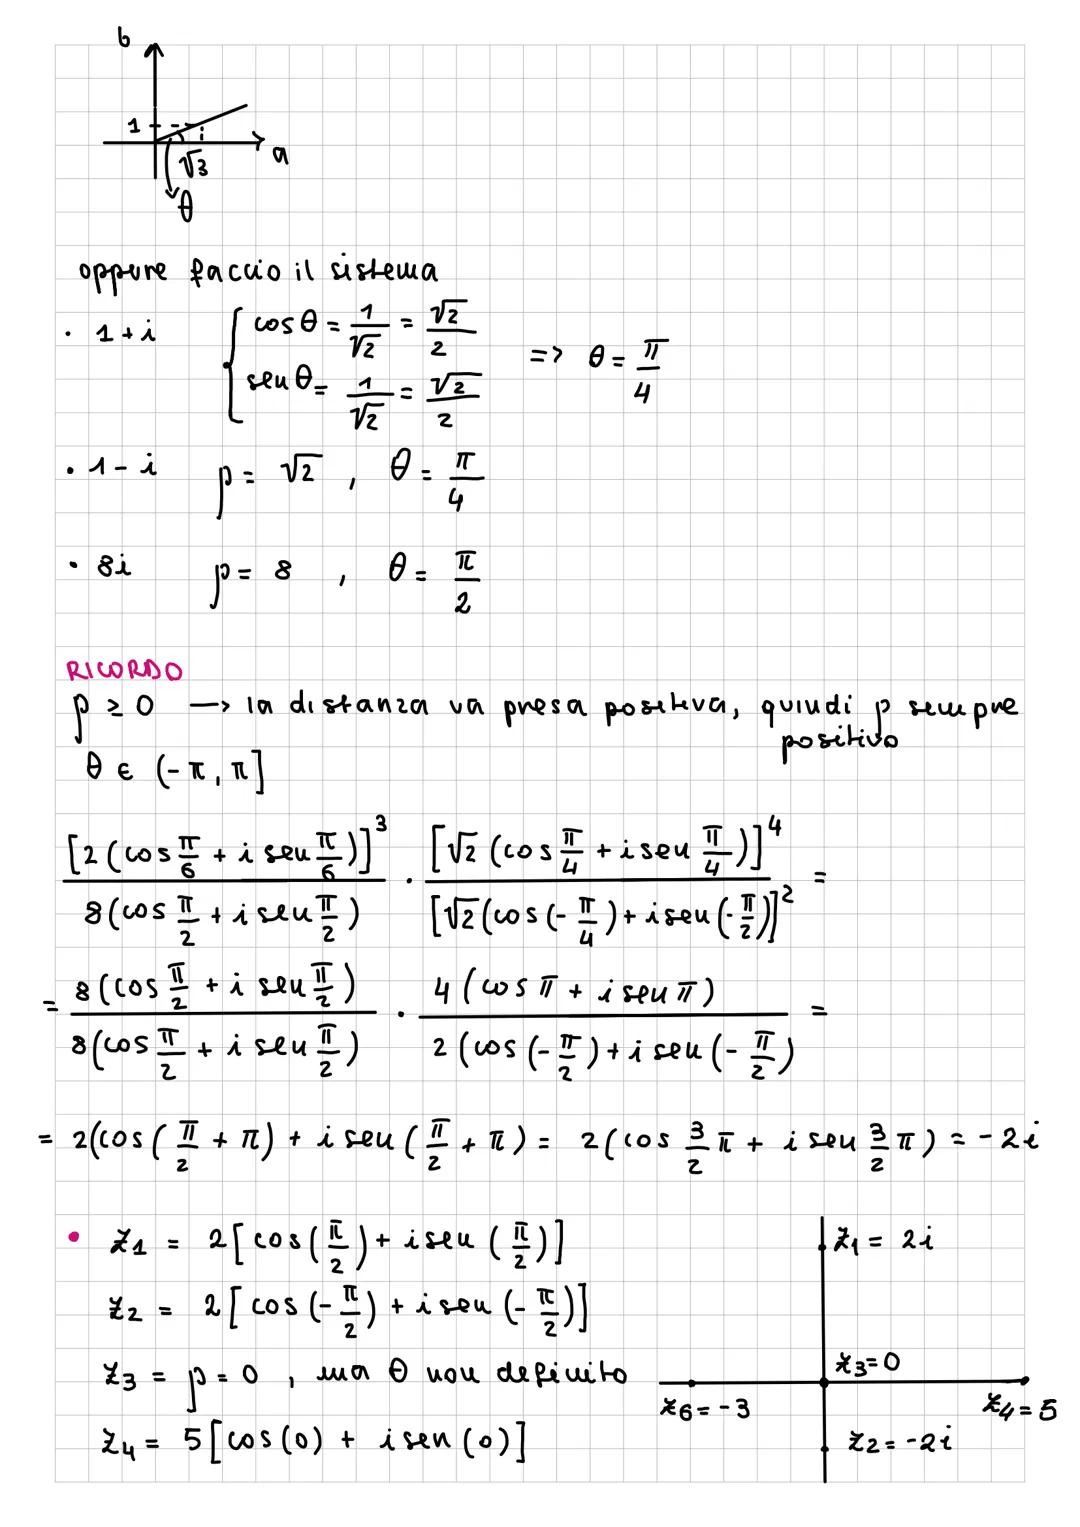 b
1
√3
a
θ
oppure faccio il sistema
· 1+i { cosθ = 1/√2 = √2/2
senθ = 1/√2 = √2/2 => θ = π/4
· 1-i ρ = √2 , θ = π/4
· 8i ρ = 8 , θ = π/2
RICORDO
ρ ≥ 0 → la distanza va presa positiva, quindi ρ sempre
positivo
θ ∈ (-π, π]
[2(cos π/6 + i sen π/6)]³ / 8(cos π/2 + i sen π/2) · [√2(cos π/4 + i sen π/4)]⁴ / [√2(cos(-π/4) + i sen(-π/2)]² =
= 8(cos π/2 + i sen π/2) / 8(cos π/2 + i sen π/2) · 4(cos π + i sen π) / 2(cos(-π/2) + i sen(-π/2) =
= 2(cos(π/2 + π) + i sen(π/2 + π) = 2(cos 3/2 π + i sen 3/2 π) = -2i
• z1 = 2[cos(π/2) + i sen(π/2)]
z2 = 2[cos(-π/2) + i sen(-π/2)]
z3 = ρ = 0 , ma θ non definito
z4 = 5[cos(0) + i sen(0)]
z1 = 2i
z3=0
z6=-3
z4=5
z2=-2i